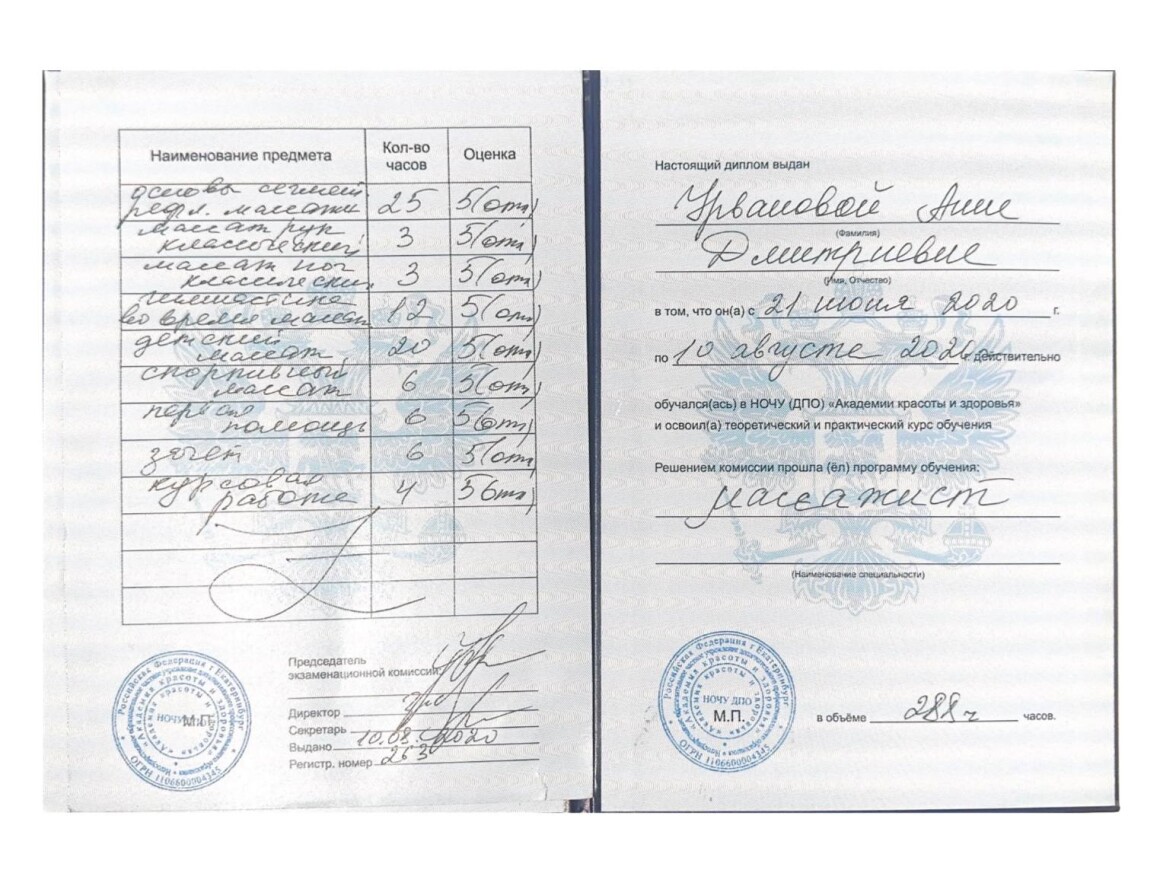 Наименование предмета
Кол-во часов
Оценка
основы сегмент
рефл. массажа 25 5(отл)
массаж рук
классический 3 5(отл)
массаж ног
классический 3 5(отл)
гимнастика
во время массаж 12 5(отл)
детский
массаж 20 5(отл)
спортивный
массаж 6 5(отл)
первая
помощь 6 5(отл)
зачёт 6 5(отл)
курсовая
работа 4 5(отл)
Председатель
экзаменационной комиссии
Директор
Секретарь
Выдано 10.08.2020
Регистр. номер 263
М.П.
Настоящий диплом выдан
Урвановой Анне
(Фамилия)
Дмитриевне
(Имя, Отчество)
в том, что он(а) с 21 июля 2020 г.
по 10 августа 2020 г. действительно
обучался(ась) в НОЧУ (ДПО) «Академии красоты и здоровья»
и освоил(а) теоретический и практический курс обучения
Решением комиссии прошла (ёл) программу обучения:
массажист
(Наименование специальности)
Российская Федерация г Екатеринбург
«Академия красоты и здоровья»
НОЧУ ДПО
М.П.
в объёме 288 ч часов.